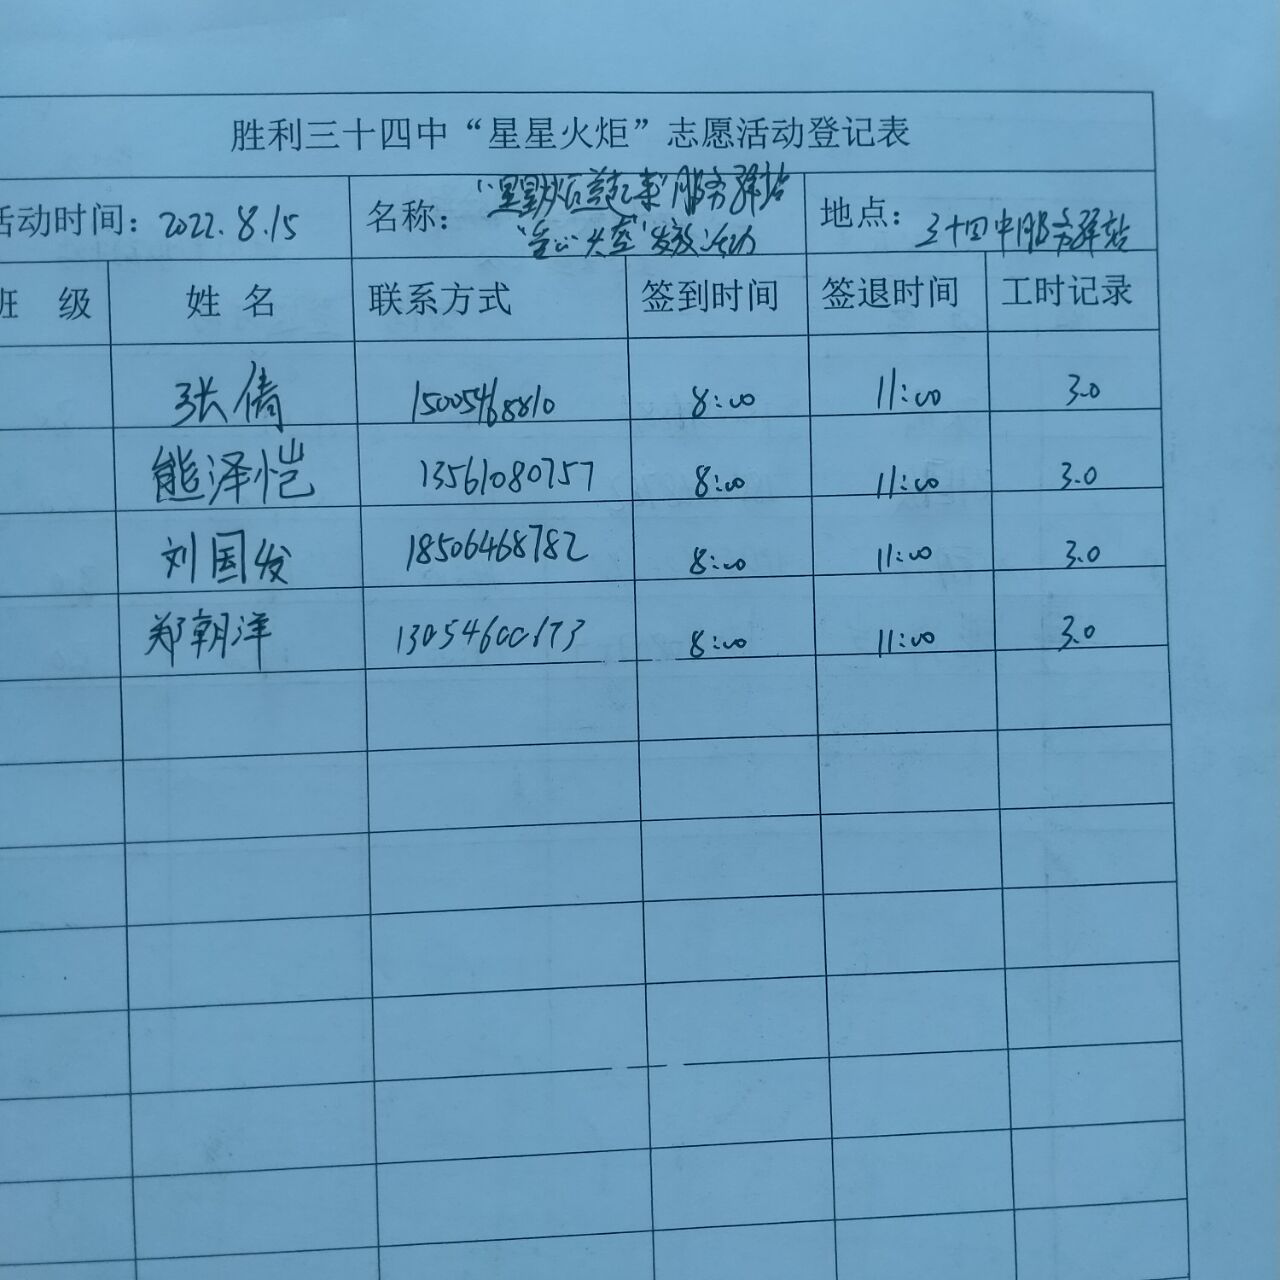 胜利三十四中“星星火炬”志愿活动登记表
活动时间：2022.8.15 名称： 服务驿站 地点：三十四中服务驿站
发放活动
班 级 姓 名 联系方式 签到时间 签退时间 工时记录
张倩 15005468810 8:00 11:00 3.0
熊泽恺 13561080757 8:00 11:00 3.0
刘国发 18506468782 8:00 11:00 3.0
郑朝洋 8:00 11:00 3.0